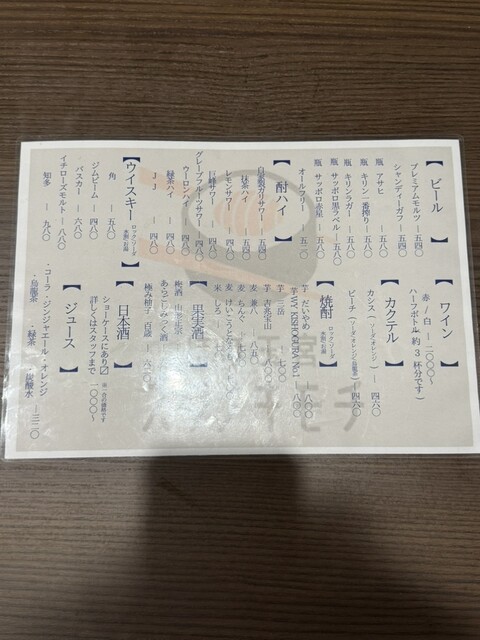 【ビール】
プレミアムモルツ ー 五四〇
シャンディーガフ ー 五四〇
瓶 アサヒ ー 五八〇
瓶 キリン一番搾り ー 五八〇
瓶 キリンラガー ー 五八〇
瓶 サッポロ黒ラベル ー 五八〇
瓶 サッポロ赤星 ー 五八〇
オールフリー ー 五二〇
【酎ハイ】
自家製ガリサワー ー 五四〇
抹茶ハイ ー 五四〇
レモンサワー ー 四八〇
巨峰サワー ー 四八〇
グレープフルーツサワー ー 四八〇
ウーロンハイ ー 四八〇
緑茶ハイ ー 四八〇
JJ ー 四八〇
【ウイスキー】
ロック・ソーダ
水割・お湯
角 ー 五八〇
ジムビーム ー 四八〇
バスカー ー 六八〇
イチローズモルト ー 八八〇
知多 ー 九八〇
【ワイン】
赤/白 ー 二〇〇〇〜
ハーフボトル(約3杯分です)
【カクテル】
カシス(ソーダ・オレンジ) ー 四六〇
ピーチ(ソーダ・オレンジ・烏龍茶) ー 四六〇
【焼酎】
ロック・ソーダ
水割・お湯
芋 だいやめ ー 八〇〇
芋 三岳 ー 七〇〇
芋 吉兆宝山
麦 兼八 ー 八五〇
麦 ちんぐ ー 七〇〇
麦 けいこうとなるも
米 しろ ー 七〇〇
【果実酒】
梅酒
あらごしみつく酒
極み柚子 百蔵 ー 六二〇
【日本酒】
ショーケースにあり〼
詳しくはスタッフまで
一〇〇〇〜
【ジュース】
・コーラ・ジンジャエール・オレンジ
・烏龍茶 ・緑茶 ・炭酸水 ー 三二〇